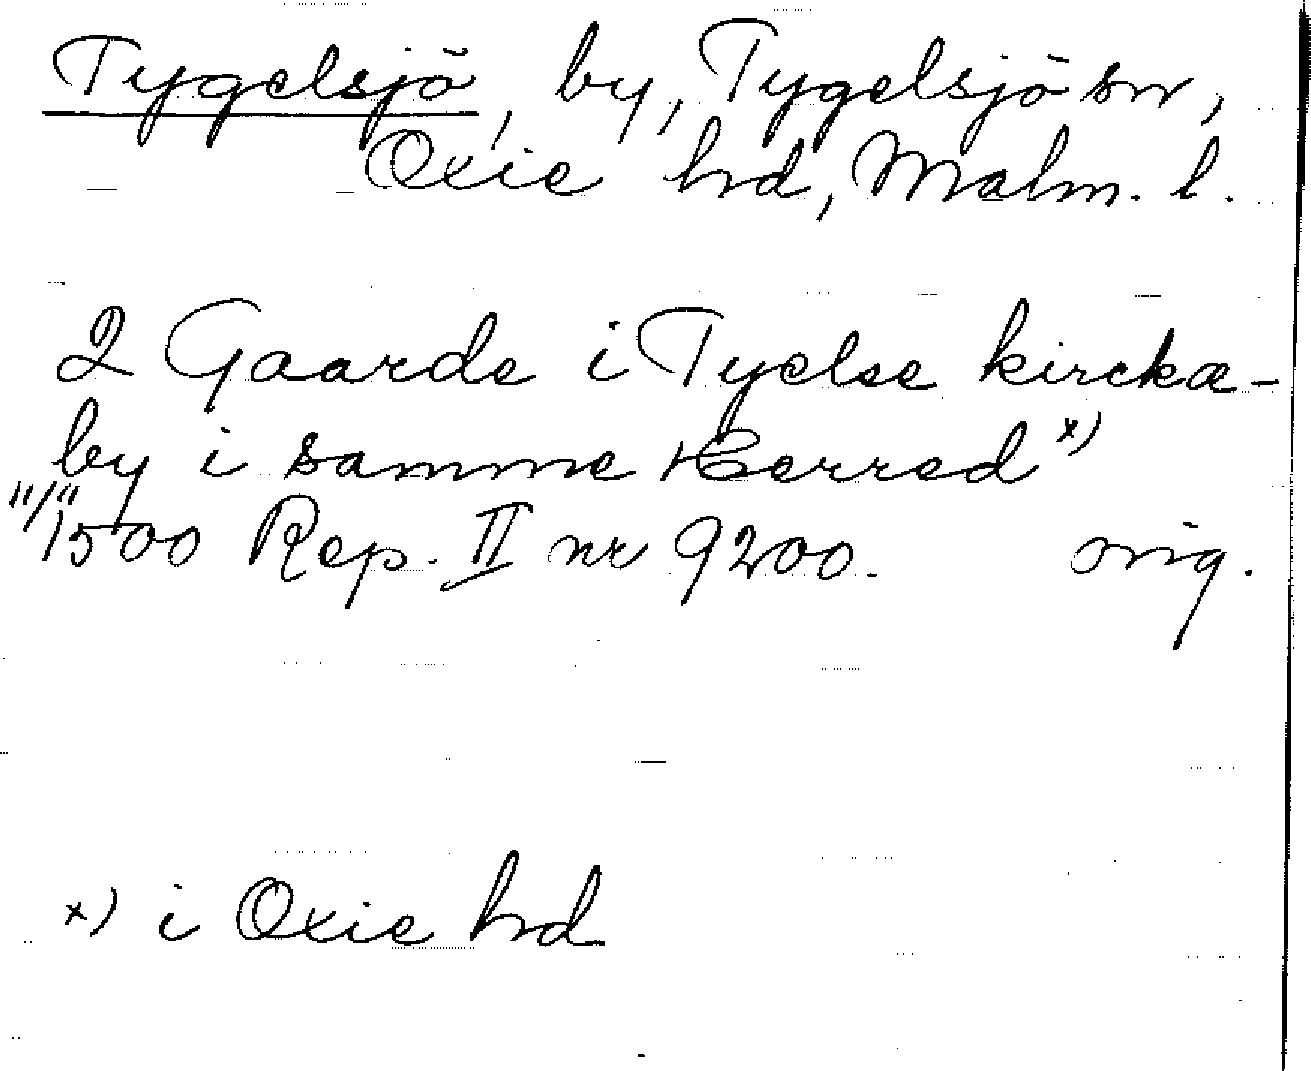 Tygelsjö, by, Tygelsjö sn,
Oxie hd, Malm. l.
2 Gaarde i Tyelse kircka-
by i samme Herred x)
11/11 1500 Rep. II nr 9200. orig.
x) i Oxie hd